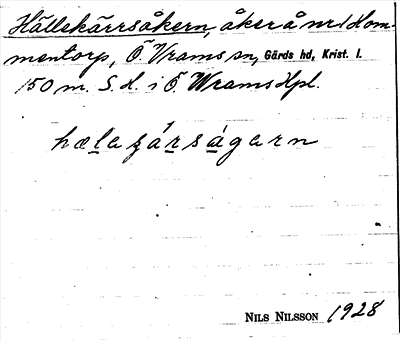 Hällekärrsåkern, åker å nr 1 Hom-
mentorp, Ö. Vrams sn, Gärds hd, Krist. l.
150 m. S. d. i Ö. Wrams Hpl.
hælaʒárságarn
NILS NILSSON 1928